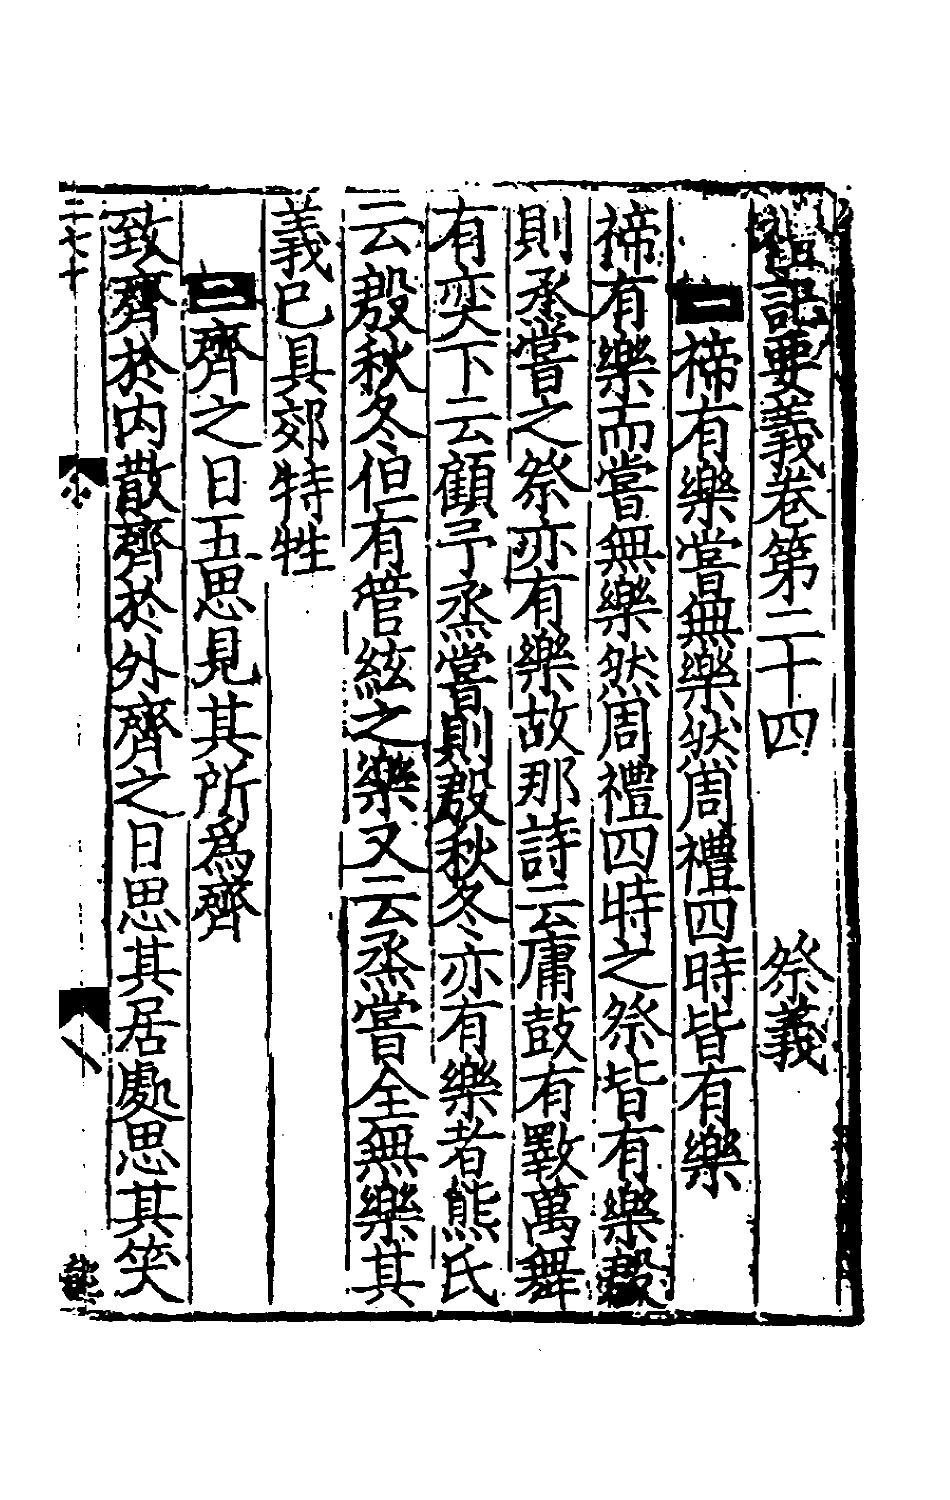 禮記要義卷第二十四　祭義
一禘有樂嘗無樂然周禮四時皆有樂
禘有樂而嘗無樂然周禮四時之祭皆有樂殷
則烝嘗之祭亦有樂故那詩云庸鼓有斁萬舞
有奕下云顧予烝嘗則殷秋冬亦有樂者熊氏
云殷秋冬但有管絃之樂又云烝嘗全無樂其
義已具郊特牲
二齊之日五思見其所為齊
致齊於内散齊於外齊之日思其居處思其笑